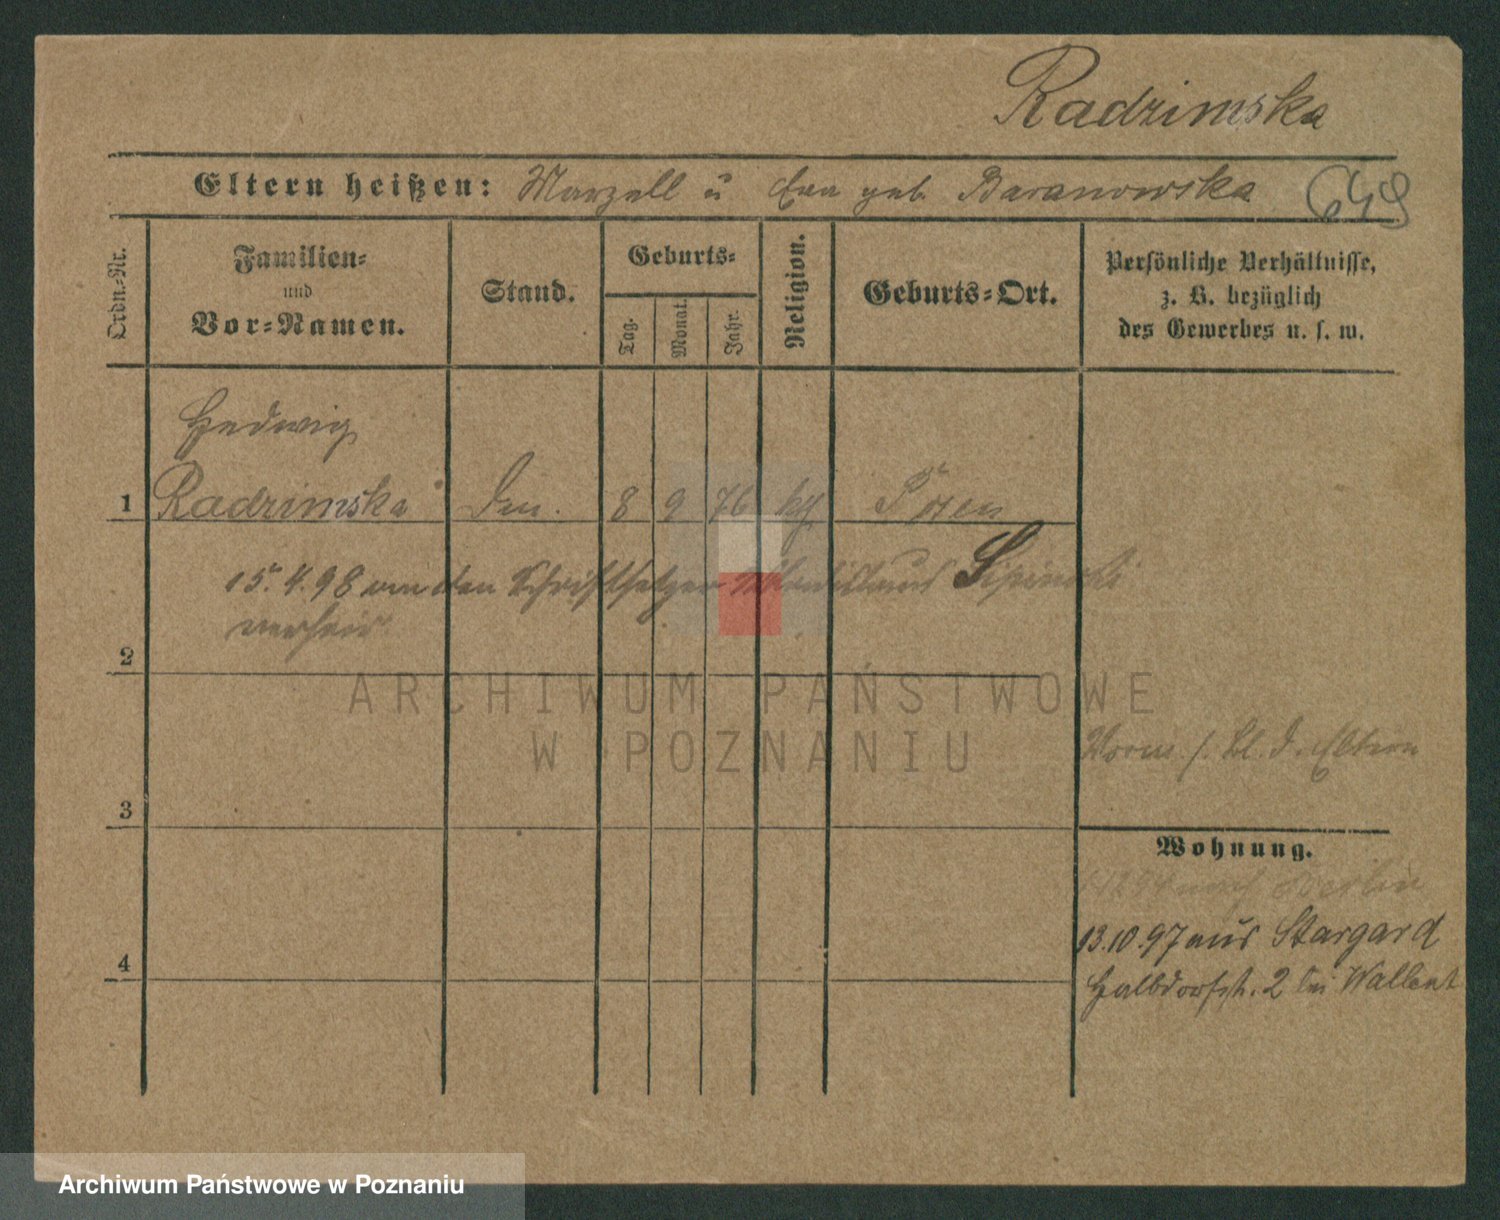 Radzimska
Eltern heißen: Marzell u Eva geb. Baranowska 649
Ordn.-Nr.
Familien-
und
Vor-Namen.
Stand.
Geburts-
Tag.
Monat.
Jahr.
Religion.
Geburts-Ort.
Persönliche Verhältnisse,
z. B. bezüglich
des Gewerbes u. s. w.
Hedwig
1 Radzimska 8 9 76 kth Posen
15.4.98 an den Schriftsetzer Lipinski
verheir
2
ARCHIWUM PAŃSTWOWE
W POZNANIU
d. Eltern
3
Wohnung.
nach Berlin
13.10.97 aus Stargard
Halbdorfstr. 2 bei
4
Archiwum Państwowe w Poznaniu